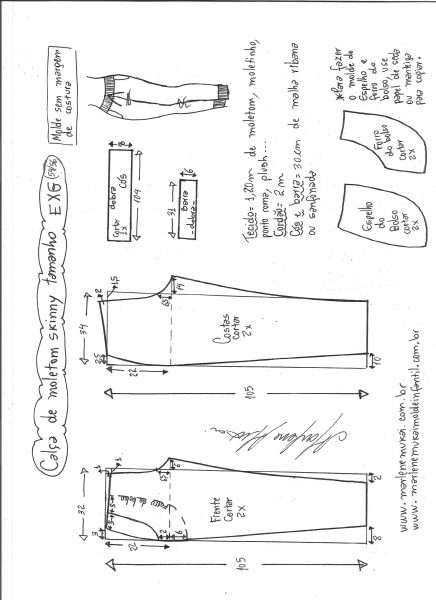 Calça de moletom skinny tamanho EXG (56)
Molde sem margem
de costura
8
Cortar dobra
1x
Cós
104
6
31
barra
- dobra -
Tecido = 1,20m de moletom, moletinho,
ponto roma, plush....
Cordão = 2m
Cós e barra = 30cm de malha ribana
ou sanfonada
*Para fazer
o molde do
Espelho e
forro do
bolso, use
papel de seda
ou manteiga
para copiar.
Forro
do bolso
cortar
2x
Espelho
do
Bolso
cortar
2x
34
2
1,5
14
2,5
22
Costas
Cortar
2x
10
105
32
1
1
6
3
22
2
6
Frente
Cortar
2x
2
8
105
www.marlenemukai.com.br
www.marlenemukaimoldeinfantil.com.br